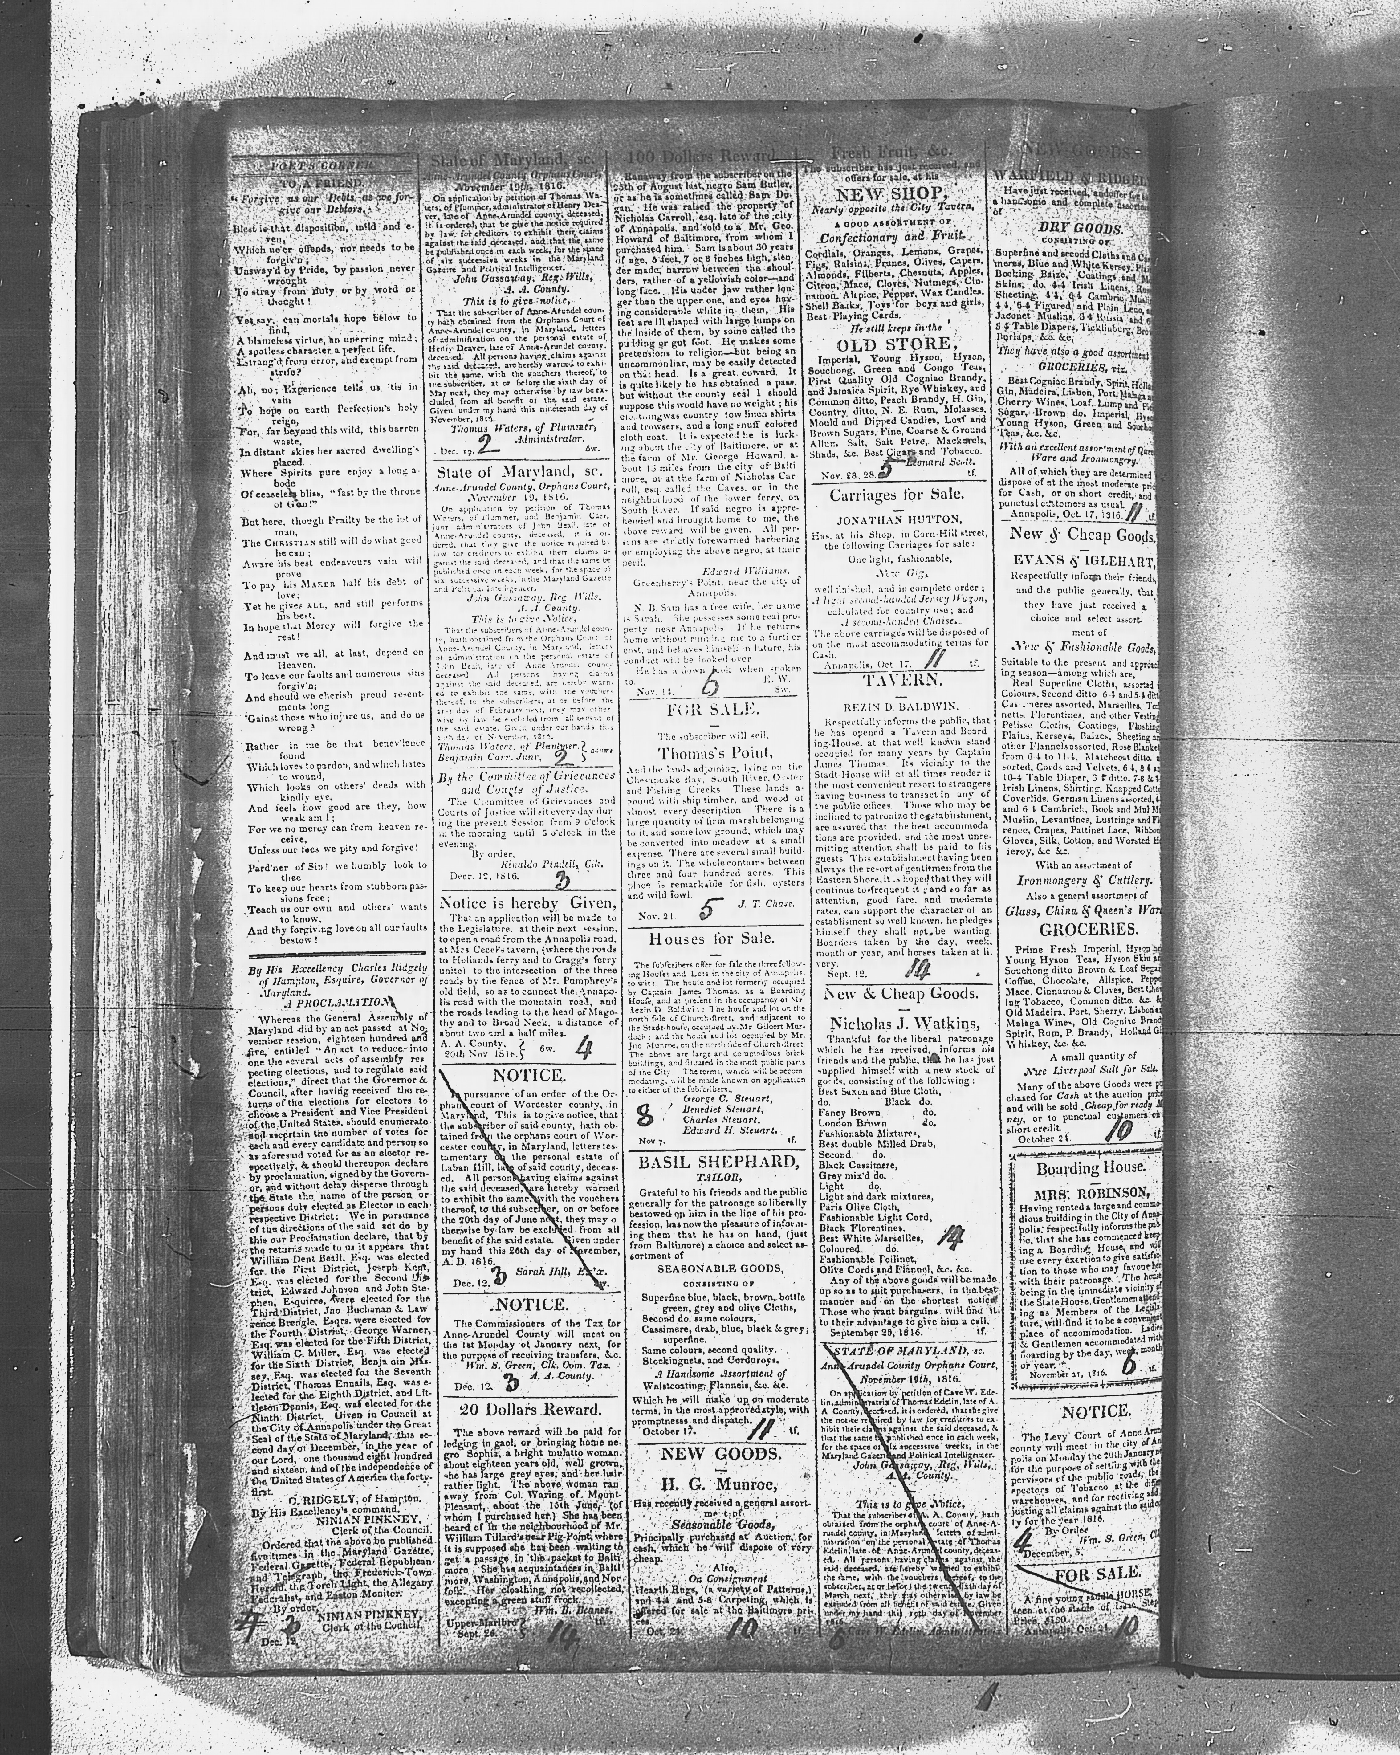 POET'S CORNER.
TO A FRIEND.
"Forgive us our Debts, as we for-
give our Debtors."
Blest is that disposition, mild and e-
ven,
Which ne'er offends, nor needs to be
forgiv'n;
Unsway'd by Pride, by passion never
wrought
To stray from duty or by word or
thought!
Yet say, can mortals hope below to
find,
A blameless virtue, an unerring mind;
A spotless character a perfect life,
Estrang'd from error, and exempt from
strife?
Ah, no; Experience tells us 'tis in
vain
To hope on earth Perfection's holy
reign,
For, far beyond this wild, this barren
waste,
In distant skies her sacred dwelling's
placed.
Where Spirits pure enjoy a long a-
bode
Of ceaseless bliss, "fast by the throne
of God!"
But here, though Frailty be the lot of
man,
The CHRISTIAN still will do what good
he can;
Aware his best endeavours vain will
prove
To pay his MAKER half his debt of
love;
Yet he gives ALL, and still performs
his best,
In hope that Mercy will forgive the
rest!
And must we all, at last, depend on
Heaven,
To leave our faults and numerous sins
forgiv'n;
And should we cherish proud resent-
ments long
'Gainst those who injure us, and do us
wrong?
Rather in me be that benevolence
found
Which loves to pardon, and which hates
to wound,
Which looks on others' deeds with
kindly eye,
And feels how good are they, how
weak am I;
For we no mercy can from heaven re-
ceive,
Unless our foes we pity and forgive!
Pard'ner of Sin! we humbly look to
thee
To keep our hearts from stubborn pas-
sions free;
Teach us our own and others' wants
to know,
And thy forgiving love on all our faults
bestow!
By His Excellency Charles Ridgely
of Hampton, Esquire, Governor of
Maryland.
A PROCLAMATION.
Whereas the General Assembly of
Maryland did by an act passed at No-
vember session, eighteen hundred and
five, entitled "An act to reduce into
one the several acts of assembly res-
pecting elections, and to regulate said
elections," direct that the Governor &
Council, after having received the re-
turns of the elections for electors to
choose a President and Vice President
of the United States, should enumerate
and ascertain the number of votes for
each and every candidate and person so
as aforesaid voted for as an elector re-
spectively, & should thereupon declare
by proclamation, signed by the Govern-
or, and without delay disperse through
the State the name of the person or
persons duly elected as Elector in each
respective District: We in pursuance
of the directions of the said act do by
this our Proclamation declare, that by
the returns made to us it appears that
William Dent Beall, Esq. was elected
for the First District, Joseph Kent,
Esq. was elected for the Second Dis-
trict, Edward Johnson and John Ste-
phen, Esquires, were elected for the
Third District, Jno Buchanan & Law
rence Brengle, Esqrs. were elected for
the Fourth District, George Warner,
Esq. was elected for the Fifth District,
William C. Miller, Esq. was elected
for the Sixth District, Benjamin Mas-
sey, Esq. was elected for the Seventh
District, Thomas Ennalls, Esq. was e-
lected for the Eighth District, and Lit-
tleton Dennis, Esq. was elected for the
Ninth District. Given in Council at
the City of Annapolis under the Great
Seal of the State of Maryland, this se-
cond day of December, in the year of
our Lord, one thousand eight hundred
and sixteen, and of the independence of
the United States of America the forty-
first.
C. RIDGELY, of Hampton.
By His Excellency's command,
NINIAN PINKNEY,
Clerk of the Council.
Ordered that the above be published
five times in the Maryland Gazette,
Federal Gazette, Federal Republican
and Telegraph, the Frederick-Town
Herald, the Torch Light, the Allegany
Federalist, and Easton Monitor.
By order,
NINIAN PINKNEY,
Clerk of the Council.
Dec. 12.
State of Maryland, sc.
Anne-Arundel County Orphans Court,
November 19th, 1816.
On application by petition of Thomas Wa-
ters, of Plummer, administrator of Henry Dea-
ver, late of Anne-Arundel county, deceased,
it is ordered, that he give the notice required
by law, for creditors to exhibit their claims
against the said deceased, and that the same
be published once in each week, for the space
of six successive weeks in the Maryland
Gazette and Political Intelligencer.
John Gassaway, Reg. Wills,
A. A. County.
This is to give notice,
That the subscriber of Anne-Arundel coun-
ty hath obtained from the Orphans Court of
Anne-Arundel county, in Maryland, letters
of administration on the personal estate of
Henry Deaver, late of Anne-Arundel county,
deceased. All persons having claims against
the said deceased, are hereby warned to exhi-
bit the same, with the vouchers thereof, to
the subscriber, at or before the sixth day of
May next, they may otherwise by law be ex-
cluded from all benefit of the said estate.
Given under my hand this nineteenth day of
November, 1816.
Thomas Waters, of Plummer,
Administrator.
Dec. 12. 2 6w.
State of Maryland, sc.
Anne-Arundel County, Orphans Court,
November 19, 1816.
On application by petition of Thomas
Waters, of Plummer, and Benjamin Carr,
Junr administrators of John Beall, late of
Anne-Arundel county, deceased, it is or-
dered, that they give the notice required by
law for creditors to exhibit their claims a-
gainst the said deceased, and that the same be
published once in each week, for the space of
six successive weeks, in the Maryland Gazette
and Political Intelligencer.
John Gassaway, Reg. Wills.
A. A. County.
This is to give Notice,
That the subscribers of Anne-Arundel coun-
ty, hath obtained from the Orphans Court of
Anne-Arundel County, in Maryland, letters
of administration on the personal estate of
John Beall, late of Anne-Arundel county
deceased. All persons having claims
against the said deceased, are hereby warn-
ed to exhibit the same, with the vouchers
thereof, to the subscribers, at or before the
first day of February next, they may other-
wise by law be excluded from all benefit of
the said estate. Given under our hands this
19th day of November, 1816.
Thomas Waters, of Plummer,
Benjamin Carr, Junr, 2
By the Committee of Grievances
and Courts of Justice.
The Committee of Grievances and
Courts of Justice will sit every day dur-
ing the present Session from 9 o'clock
in the morning until 3 o'clock in the
evening.
By order,
Rinaldo Pindell, Clk.
Decr. 12, 1816. 3
Notice is hereby Given,
That an application will be made to
the Legislature, at their next session,
to open a road from the Annapolis road,
at Mrs Cecel's tavern, (where the roads
to Hollands ferry and to Cragg's ferry
unite) to the intersection of the three
roads by the fence of Mr. Pumphrey's
old field, so as to connect the Annapo-
lis road with the mountain road, and
the roads leading to the head of Mago-
thy and to Broad Neck, a distance of
about two and a half miles.
A. A. County,
20th Nov 1816. 6w. 4
NOTICE.
In pursuance of an order of the Or-
phans court of Worcester county, in
Maryland, This is to give notice, that
the subscriber of said county, hath ob-
tained from the orphans court of Wor-
cester county, in Maryland, letters tes-
tamentary on the personal estate of
Laban Hill, late of said county, deceas-
ed. All persons having claims against
the said deceased, are hereby warned
to exhibit the same, with the vouchers
thereof, to the subscriber, on or before
the 20th day of June next, they may o-
therwise by law be excluded from all
benefit of the said estate. Given under
my hand this 26th day of November,
A. D. 1816.
Sarah Hill, Ex'x.
Dec. 12. 3
NOTICE.
The Commissioners of the Tax for
Anne-Arundel County will meet on
the 1st Monday of January next, for
the purpose of receiving transfers, &c.
Wm. S. Green, Clk. Com. Tax.
A. A. County.
Dec. 12. 3
20 Dollars Reward.
The above reward will be paid for
lodging in gaol, or bringing home ne-
gro Sophia, a bright mulatto woman,
about eighteen years old, well grown,
she has large grey eyes, and her hair
rather light. The above woman ran
away from Col. Waring of Mount-
Pleasant, about the 15th June, (of
whom I purchased her.) She has been
heard of in the neighbourhood of Mr.
William Tillard's near Pig-Point, where
it is supposed she has been waiting to
get a passage in the packet to Balti-
more. She has acquaintances in Balti-
more, Washington, Annapolis, and Nor-
folk. Her cloathing not recollected,
excepting a green stuff frock.
Wm. B. Beanes.
Upper-Marlbro'
Sept. 26. 14
100 Dollars Reward.
Ranaway from the subscriber on the
25th of August last, negro Sam Butler,
or as he is sometimes called Sam Du-
gan. He was raised the property of
Nicholas Carroll, esq. late of the city
of Annapolis, and sold to a Mr. Geo.
Howard of Baltimore, from whom I
purchased him. Sam is about 30 years
of age, 5 feet, 7 or 8 inches high, slen-
der made, narrow between the shoul-
ders, rather of a yellowish color—and
long face. His under jaw rather lon-
ger than the upper one, and eyes hav-
ing considerable white in them. His
feet are ill shaped with large lumps on
the inside of them, by some called the
pudding or gut foot. He makes some
pretensions to religion—but being an
uncommon liar, may be easily detected
on that head. Is a great coward. It
is quite likely he has obtained a pass,
but without the county seal I should
suppose this would have no weight; his
cloathing was country tow linen shirts
and trowsers, and a long snuff colored
cloth coat. It is expected he is lurk-
ing about the city of Baltimore, or at
the farm of Mr. George Howard, a-
bout 15 miles from the city of Balti
more, or at the farm of Nicholas Car
roll, esq. called the Caves, or in the
neighborhood of the lower ferry, on
South River. If said negro is appre-
hended and brought home to me, the
above reward will be given. All per-
sons are strictly forewarned harboring
or employing the above negro, at their
peril.
Edward Williams,
Greenberry's Point, near the city of
Annapolis.
N. B. Sam has a free wife, her name
is Sarah. She possesses some real pro-
perty near Annapolis. If he returns
home without putting me to a further
cost, and behaves himself in future, his
conduct will be looked over.
He has a down look when spoken
to. E. W.
Nov. 14. 6 8w.
FOR SALE.
The subscriber will sell,
Thomas's Point,
And the lands adjoining, lying on the
Chesapeake Bay, South River, Oyster
and Fishing Creeks. These lands a-
bound with ship timber, and wood of
almost every description. There is a
large quantity of firm marsh belonging
to it, and some low ground, which may
be converted into meadow at a small
expense. There are several small build-
ings on it. The whole contains between
three and four hundred acres. This
place is remarkable for fish, oysters
and wild fowl.
J. T. Chase.
Nov. 21. 5
Houses for Sale.
The subscribers offer for sale the three follow-
ing Houses and Lots in the city of Annapolis,
to wit: The house and lot formerly occupied
by Captain James Thomas, as a Boarding
House, and at present in the occupancy of Mr
Rezin D. Baldwin: The house and lot on the
north side of Church-street, and adjacent to
the Stadt-house, occupied by Mr. Gilbert Mur-
dock; and the house and lot occupied by Mr.
Jno. Munroe, on the north side of Church-street.
The above are large and commodious brick
buildings, and situated in the most public parts
of the City. The terms, which will be accom-
modating, will be made known on application
to either of the subscribers.
George C. Steuart,
Benedict Steuart,
Charles Steuart,
Edward H. Steuart.
8
Nov 7. tf.
BASIL SHEPHARD,
TAILOR,
Grateful to his friends and the public
generally for the patronage so liberally
bestowed on him in the line of his pro-
fession, has now the pleasure of inform-
ing them that he has on hand, (just
from Baltimore) a choice and select as-
sortment of
SEASONABLE GOODS,
CONSISTING OF
Superfine blue, black, brown, bottle
green, grey and olive Cloths,
Second do. same colours,
Cassimere, drab, blue, black & grey;
superfine.
Same colours, second quality.
Stockingnets, and Corduroys.
A Handsome Assortment of
Waistcoating, Flannels, &c. &c.
Which he will make up on moderate
terms, in the most approved style, with
promptness and dispatch.
October 17. 11 tf.
NEW GOODS.
H. G. Munroe,
Has recently received a general assort-
ment of
Seasonable Goods,
Principally purchased at Auction, for
cash, which he will dispose of very
cheap.
Also,
On Consignment
Hearth Rugs, (a variety of Patterns,)
and 4-4 and 5-8 Carpeting, which is
offered for sale at the Baltimore pri-
ces.
Oct. 24. 10 tf.
Fresh Fruit, &c.
The subscriber has just received, and
offers for sale, at his
NEW SHOP,
Nearly opposite the City Tavern,
A GOOD ASSORTMENT OF
Confectionary and Fruit.
Cordials, Oranges, Lemons, Grapes,
Figs, Raisins, Prunes, Olives, Capers,
Almonds, Filberts, Chesnuts, Apples,
Citron, Mace, Cloves, Nutmegs, Cin-
namon, Alspice, Pepper, Wax Candles,
Shell Barks, Toys for boys and girls,
Best Playing Cards.
He still keeps in the
OLD STORE,
Imperial, Young Hyson, Hyson,
Souchong, Green and Congo Teas,
First Quality Old Cogniac Brandy,
and Jamaica Spirit, Rye Whiskey, and
Common ditto, Peach Brandy, H. Gin,
Country ditto, N. E. Rum, Molasses,
Mould and Dipped Candles, Loaf and
Brown Sugars, Fine, Coarse & Ground
Allum Salt, Salt Petre, Mackarels,
Shads, &c. Best Cigars and Tobacco.
Leonard Scott.
Nov. 28, 28. 5 tf.
Carriages for Sale.
JONATHAN HUTTON,
Has, at his Shop, in Corn-Hill street,
the following Carriages for sale:
One light, fashionable,
New Gig,
well finished, and in complete order;
A light second-handed Jersey Wagon,
calculated for country use; and
A second-handed Chaise.
The above carriages will be disposed of
on the most accommodating terms for
Cash.
Annapolis, Oct 17. 11 tf.
TAVERN.
REZIN D. BALDWIN,
Respectfully informs the public, that
he has opened a Tavern and Board
ing-House, at that well known stand
occupied for many years by Captain
James Thomas. It's vicinity to the
Stadt House will at all times render it
the most convenient resort to strangers
having business to transact in any of
the public offices. Those who may be
inclined to patronize the establishment,
are assured that the best accommoda-
tions are provided, and the most unre-
mitting attention shall be paid to his
guests. This establishment having been
always the resort of gentlemen from the
Eastern Shore, it is hoped that they will
continue to frequent it; and so far as
attention, good fare, and moderate
rates, can support the character of an
establisment so well known, he pledges
himself they shall not be wanting.
Boarders taken by the day, week,
month or year, and horses taken at li-
very.
Sept. 12. 14
New & Cheap Goods.
Nicholas J. Watkins,
Thankful for the liberal patronage
which he has received, informs his
friends and the public, that he has just
supplied himself with a new stock of
goods, consisting of the following:
Best Saxon and Blue Cloth,
do. Black do.
Fancy Brown do.
London Brown do.
Fashionable Mixtures,
Best double Milled Drab,
Second do.
Black Cassimere,
Grey mix'd do.
Light do.
Light and dark mixtures,
Paris Olive Cloth,
Fashionable Light Cord,
Black Florentines,
Best White Marseilles, 14
Coloured do.
Fashionable Toilinet,
Olive Cords and Flannel, &c. &c.
Any of the above goods will be made
up so as to suit purchasers, in the best
manner and on the shortest notice.
Those who want bargains will find it
to their advantage to give him a call.
September 29, 1816. tf.
STATE OF MARYLAND, sc.
Anne-Arundel County Orphans Court,
November 19th, 1816.
On application by petition of Cave W. Ede-
lin, administrator of Thomas Edelin, late of A.
A. County, deceased, it is ordered, that he give
the notice required by law for creditors to ex-
hibit their claims against the said deceased, &
that the same be published once in each week,
for the space of six successive weeks, in the
Maryland Gazette and Political Intelligencer.
John Gassaway, Reg. Wills,
A. A. County.
This is to give Notice,
That the subscriber of A. A. County, hath
obtained from the orphans court of Anne-A-
rundel county, in Maryland, letters of admi-
nistration on the personal estate of Thomas
Edelin, late of Anne-Arundel county, deceas-
ed. All persons having claims against the
said deceased, are hereby warned to exhibit
the same, with the vouchers thereof, to the
subscriber, at or before the twentieth day of
March next, they may otherwise by law be
excluded from all benefit of said estate. Given
under my hand this 19th day of November
1816.
6 Cave W. Edelin, Administrator
NEW GOODS.
WARFIELD & RIDGEL
Have just received, and offer for
a handsome and complete assortm
of
DRY GOODS.
CONSISTING OF
Superfine and second Cloths and C
meres, Blue and White Kersey, Pla
Bocking Baize, Coatings and
Skins, do. 4-4 Irish Linens, Rus
Sheeting, 4-4, 6-4 Cambric Musli
4-4, 6-4 Figured and Plain Leno,
Jaconet Muslins, 3-4 Russia and
5-4 Table Diapers, Ticklinburg, Bro
Burlaps, &c. &c.
They have also a good assortment
GROCERIES, viz.
Best Cogniac Brandy, Spirit, Holla
Gin, Madeira, Lisbon, Port, Malaga
Cherry Wines, Loaf, Lump and Pi
Sugar, Brown do. Imperial, Hys
Young Hyson, Green and Souchon
Teas, &c. &c.
With an excellent assortment of Quee
Ware and Ironmongery.
All of which they are determined
dispose of at the most moderate pri
for Cash, or on short credit, and
punctual customers as usual.
Annapolis, Oct. 17, 1816. 11 tf.
New & Cheap Goods.
EVANS & IGLEHART,
Respectfully inform their friends,
and the public generally, that
they have just received a
choice and select assort-
ment of
New & Fashionable Goods,
Suitable to the present and approach
ing season—among which are,
Real Superfine Cloths, assorted
Colours, Second ditto 6-4 and 3-4 ditto
Cassimeres assorted, Marseilles, Toi
netts, Florentines, and other Vesting
Pelisse Cloths, Coatings, Flushing
Plains, Kerseys, Baizes, Sheeting an
other Flannels assorted, Rose Blanket
from 6-4 to 11-4, Matchcoat ditto
sorted, Cords and Velvets, 6-4, 8-4 a
10-4 Table Diaper, 3-4 ditto, 7-8 & 4
Irish Linens, Shirting, Knapped Cotto
Coverlids, German Linens assorted, 4
and 6-4 Cambrick, Book and Mul Mu
Muslin, Levantines, Lustrings and Fl
rence, Crapes, Pattinet Lace, Ribbon
Gloves, Silk, Cotton, and Worsted Ho
sieroy, &c &c.
With an assortment of
Ironmongery & Cuttlery.
Also a general assortment of
Glass, China & Queen's Ware
GROCERIES.
Prime Fresh Imperial, Hyson an
Young Hyson Teas, Hyson Skin an
Souchong ditto Brown & Loaf Sugar
Coffee, Chocolate, Allspice, Peppe
Mace, Cinnamon & Cloves, Best Chew
ing Tobacco, Common ditto. &c. &
Old Madeira, Port, Sherry, Lisbon a
Malaga Wines, Old Cogniac Brand
Spirit, Rum, P. Brandy, Holland Gi
Whiskey, &c. &c.
A small quantity of
New Liverpool Salt for Sale.
Many of the above Goods were p
chased for Cash at the auction pric
and will be sold Cheap for ready M
ney, or to punctual customers
short credit.
October 24. 10 tf.
Boarding House.
MRS. ROBINSON,
Having rented a large and commo-
dious building in the City of Anna
polis, respectfully informs the pub
lic, that she has commenced keep
ing a Boarding House, and will
use every exertion to give satisfac
tion to those who may favour her
with their patronage. The house
being in the immediate vicinity of
the State House, Gentlemen attend
ing as Member of the Legisla
ture, will find it to be a convenient
place of accommodation. Ladies
& Gentlemen accommodated with
Boarding by the day, week, month
or year. 6 tf.
November 21, 1816.
NOTICE.
The Levy Court of Anne Arun
county will meet in the city of An
polis on Monday the 20th January ne
for the purpose of settling with the
pervisors of the public roads, the
spectors of Tobacco at the diffe
warehouses, and for receiving and
justing all claims against the county
ly for the year 1816.
By Order
Wm. S. Green, Cl
4
December, 5.
FOR SALE.
A fine young saddle HORSE,
seen at the stable of
Price, $100.
Annapolis, Oct 24. 10